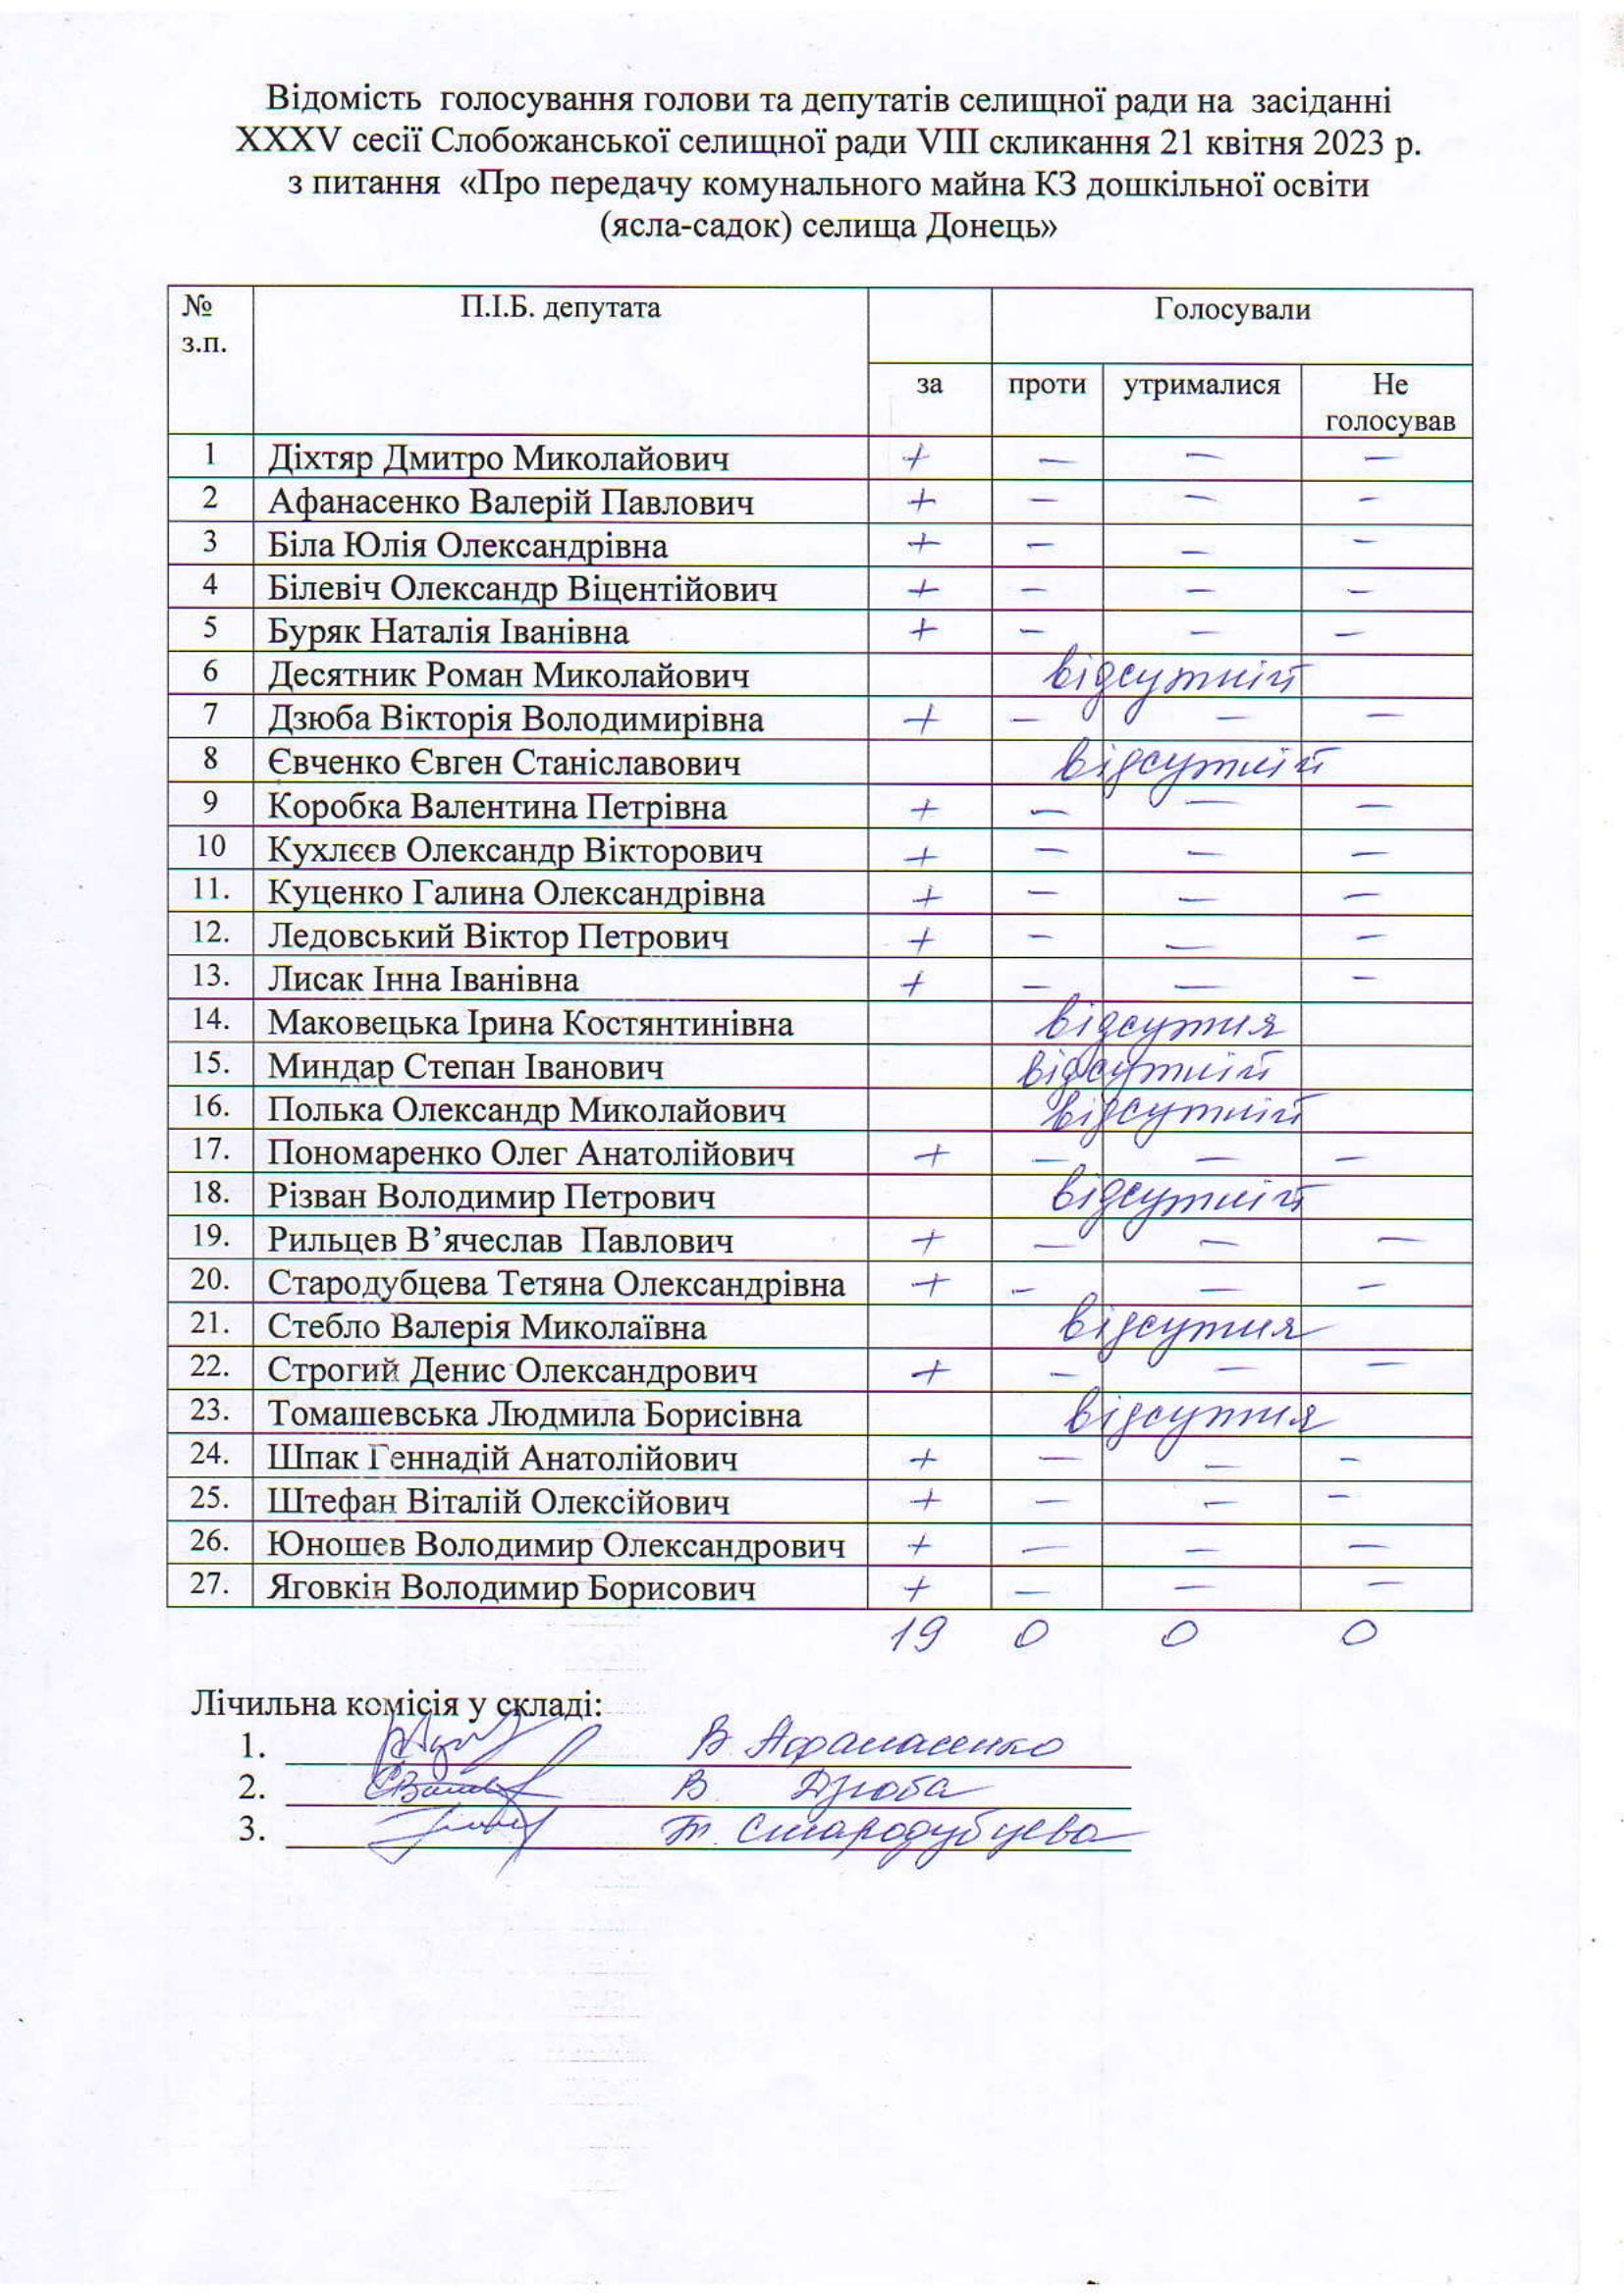 Відомість голосування голови та депутатів селищної ради на засіданні
XXXV сесії Слобожанської селищної ради VIII скликання 21 квітня 2023 р.
з питання «Про передачу комунального майна КЗ дошкільної освіти
(ясла-садок) селища Донець»
№ П.І.Б. депутата Голосували
з.п.
за проти утрималися Не
голосував
1 Діхтяр Дмитро Миколайович + — — —
2 Афанасенко Валерій Павлович + — — —
3 Біла Юлія Олександрівна + — — —
4 Білевіч Олександр Віцентійович + — — —
5 Буряк Наталія Іванівна + — — —
6 Десятник Роман Миколайович відсутній
7 Дзюба Вікторія Володимирівна + — — —
8 Євченко Євген Станіславович відсутній
9 Коробка Валентина Петрівна + — — —
10 Кухлєєв Олександр Вікторович + — — —
11. Куценко Галина Олександрівна + — — —
12. Ледовський Віктор Петрович + — — —
13. Лисак Інна Іванівна + — — —
14. Маковецька Ірина Костянтинівна відсутня
15. Миндар Степан Іванович відсутній
16. Полька Олександр Миколайович відсутній
17. Пономаренко Олег Анатолійович + — — —
18. Різван Володимир Петрович відсутній
19. Рильцев В’ячеслав Павлович + — — —
20. Стародубцева Тетяна Олександрівна + — — —
21. Стебло Валерія Миколаївна відсутня
22. Строгий Денис Олександрович + — — —
23. Томашевська Людмила Борисівна відсутня
24. Шпак Геннадій Анатолійович + — — —
25. Штефан Віталій Олексійович + — — —
26. Юношев Володимир Олександрович + — — —
27. Яговкін Володимир Борисович + — — —
19 0 0 0
Лічильна комісія у складі:
1. В. Афанасенко
2. В Дзюба
3. Т. Стародубцева